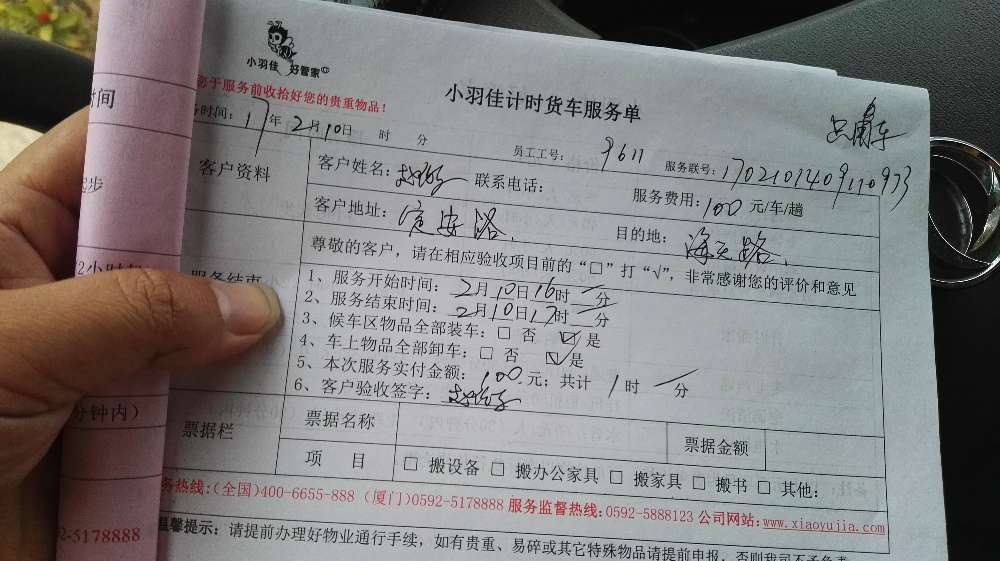 小羽佳 好管家
您于服务前收拾好您的贵重物品！
小羽佳计时货车服务单
时间：17年2月10日 时 分
员工工号：9611
服务联号：17021014091109
客户资料
客户姓名：
联系电话：
服务费用：100元/车/趟
客户地址：定安路
目的地：海天路
尊敬的客户，请在相应验收项目前的“□”打“√”，非常感谢您的评价和意见
服务结束
1、服务开始时间：2月10日16时 分
2、服务结束时间：2月10日17时 分
3、候车区物品全部装车：□ 否 ☑ 是
4、车上物品全部卸车：□ 否 ☑ 是
5、本次服务实付金额：100元；共计 1时 分
6、客户验收签字：
票据栏
票据名称
票据金额
项 目
□ 搬设备 □ 搬办公家具 □ 搬家具 □ 搬书 □ 其他：
务热线:(全国)400-6655-888 (厦门)0592-5178888 服务监督热线:0592-5888123 公司网站:www.xiaoyujia.com
温馨提示：请提前办理好物业通行手续，如有贵重、易碎或其它特殊物品请提前申报，否则我司不予负责
时间
起步
2小时
分钟内）
2-5178888